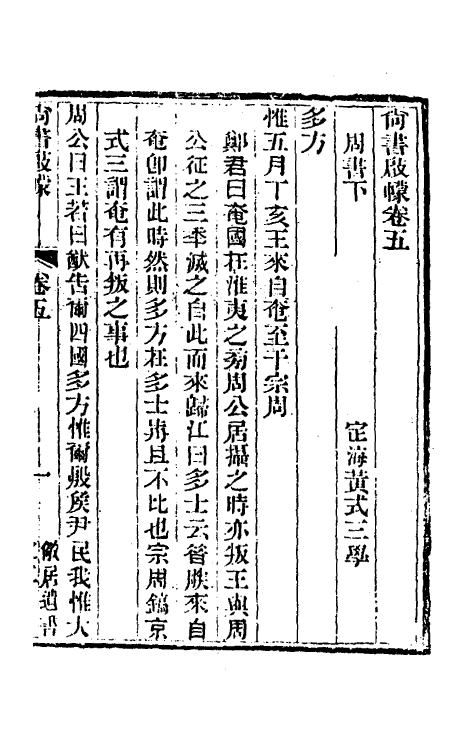 尙書啟幪卷五
周書下
定海黃式三學
多方
惟五月丁亥王來自奄至于宗周
鄭君曰奄國在淮夷之㫄周公居攝之時亦叛王與周
公征之三年滅之自此而來歸江曰多士云昔朕來自
奄卽謂此時然則多方在多士歬且不比也宗周鎬京
式三謂奄有再叛之事也
周公曰王若曰猷告爾四國多方惟爾殷矦尹民我惟大
尙書啟幪
卷五
一
儆居遺書